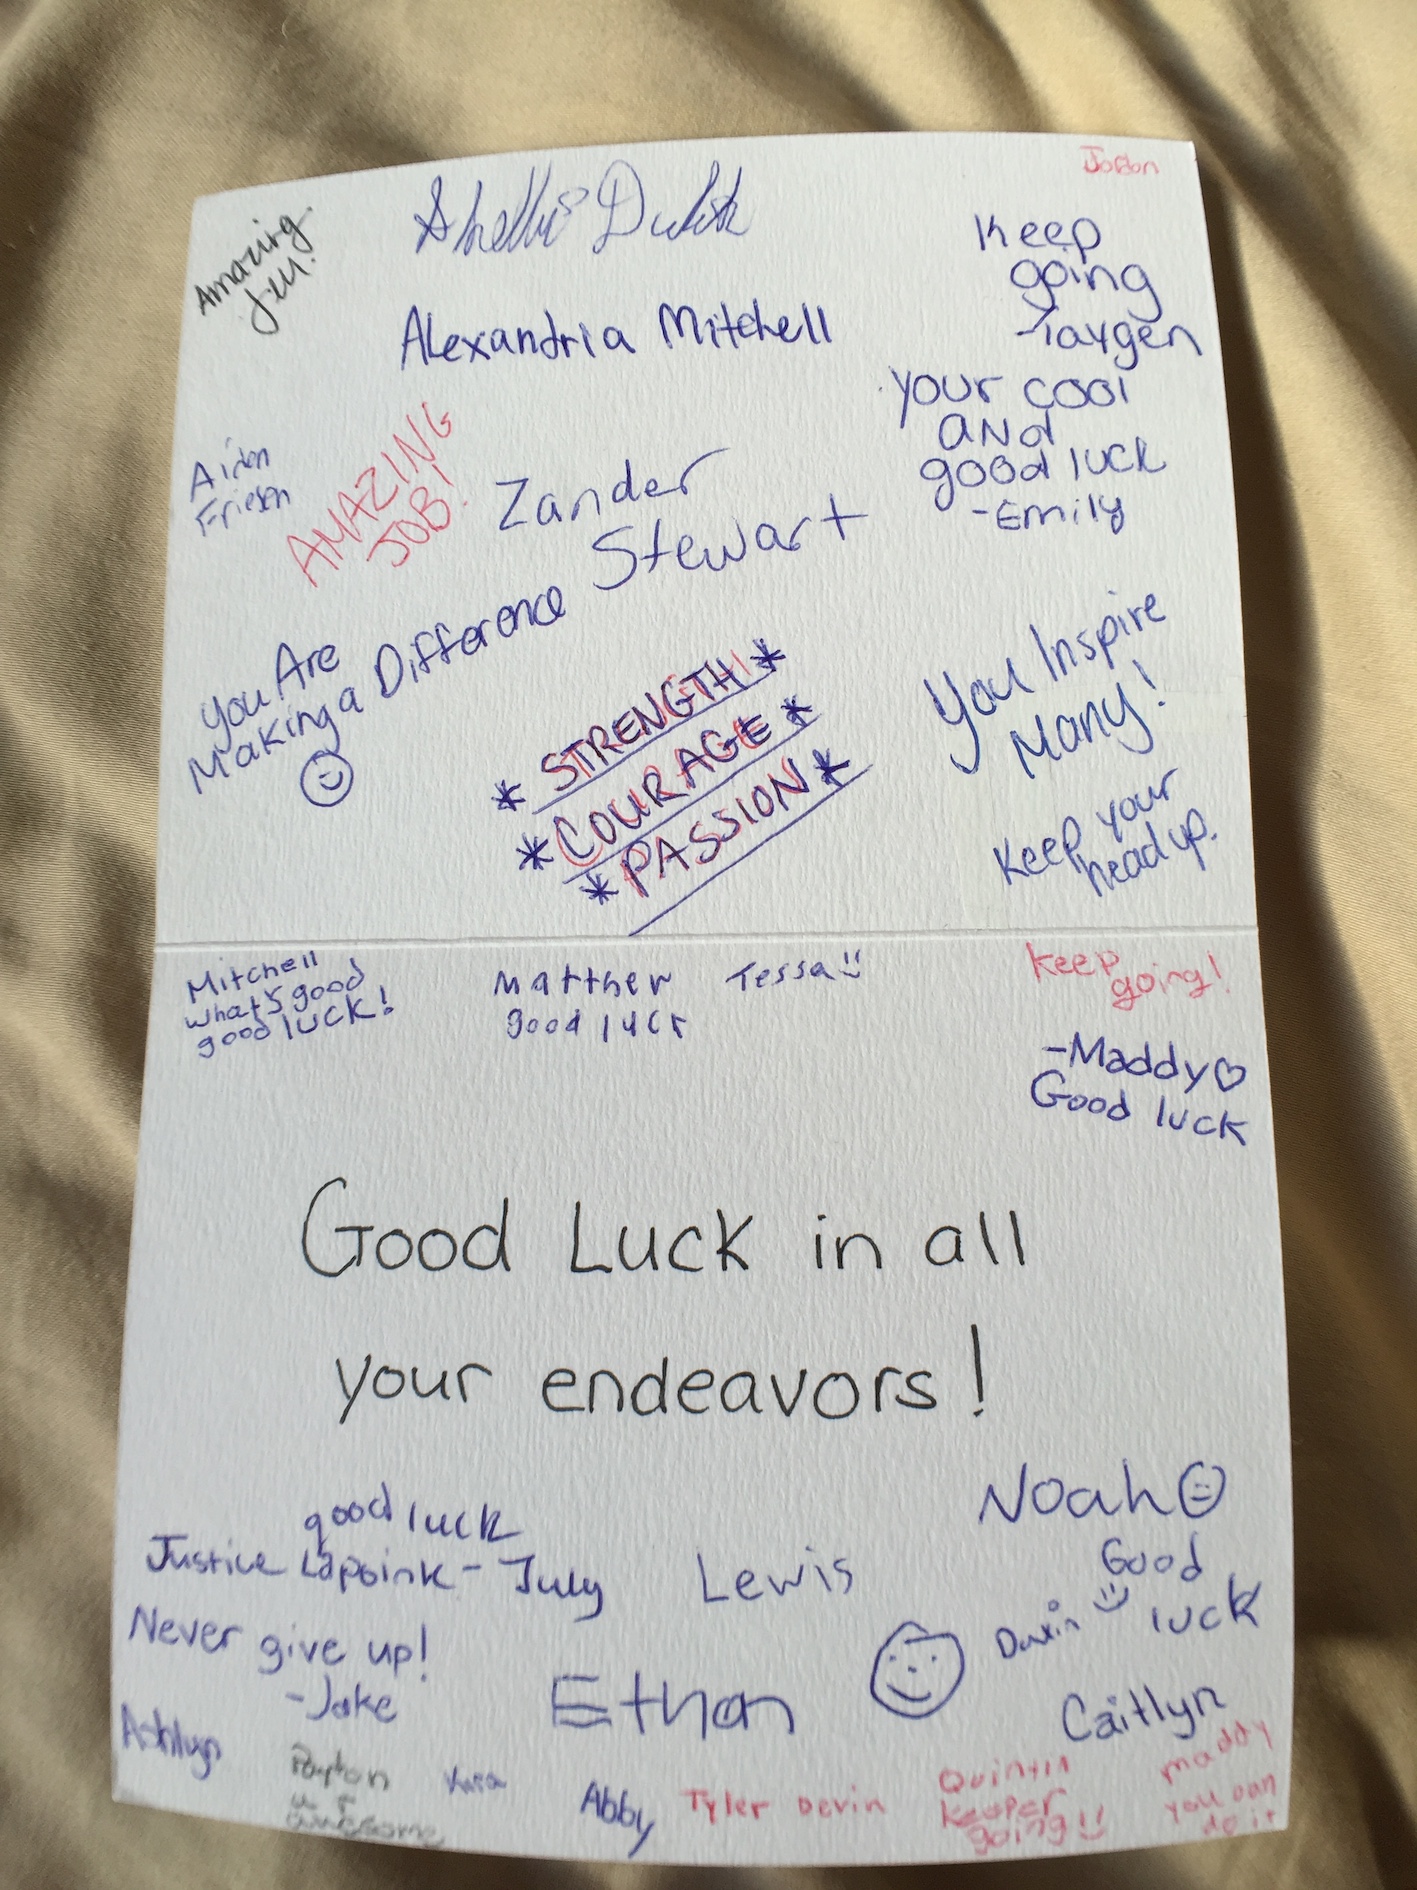 Amazing
Shellis
Alexandria Mitchell
Keep
going
-Taygen
your cool
and
good luck
-Emily
Aiden
Friesen
AMAZING
JOB!
Zander
Stewart
You Are
Making a Difference
* STRENGTH *
* COURAGE *
* PASSION *
You Inspire
Many!
Keep your
head up.
Mitchell
what's good
good luck!
Matthew
good luck
Tessa
Keep
going!
-Maddy♡
Good luck
Good Luck in all
your endeavors!
good luck
Justice Lapoink - July
Lewis
Noah
Good
luck
Never give up!
-Jake
Ethan
Caitlyn
Ashlyn
Payton
awesome
Abby
Tyler Devin
Quintin
keeper
going!!
maddy
you can
do it